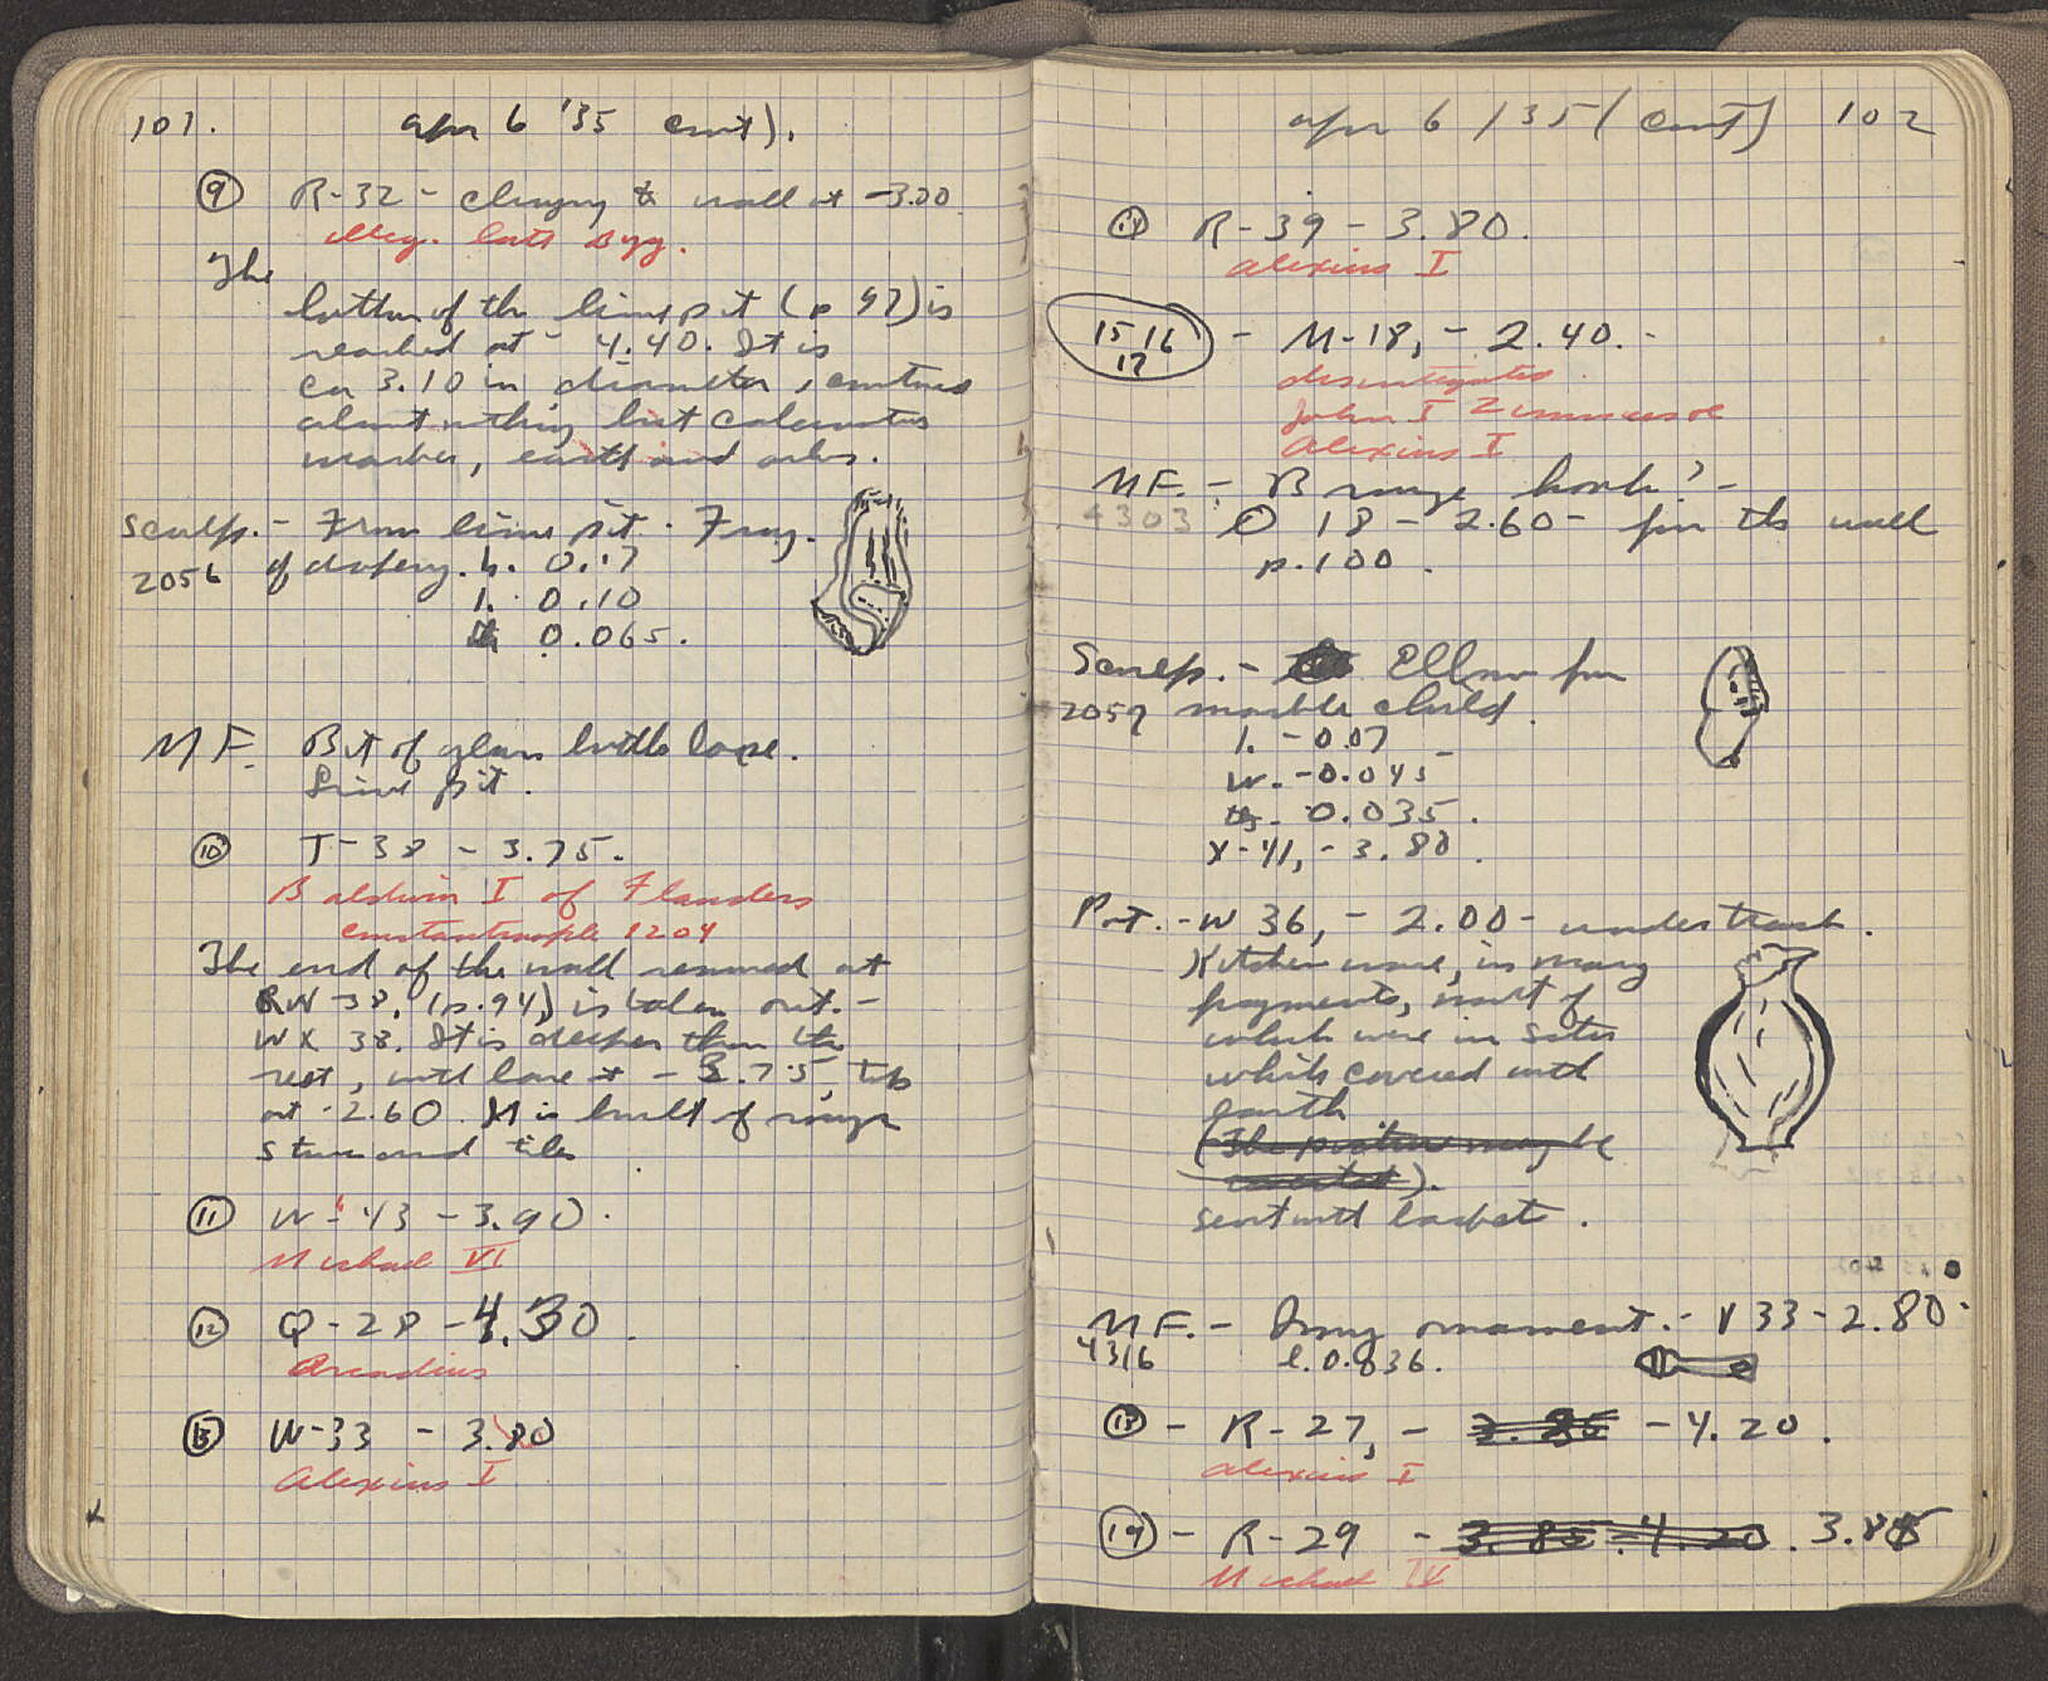 101. Apr 6 '35 cont).
⑨ R-32 - clinging to wall at -3.00
illeg. late Byz.
The
bottom of the lime pit (p 97) is
reached at - 4.40. It is
ca 3.10 in diameter, contains
almost nothing but calcinated
marble, earth and ashes.
Sculp. - From lime pit. Frag.
2056 of drapery. h. 0.17
l. 0.10
th 0.065.
MF. Bit of glass bottle base.
Lime pit.
⑩ T-38 - 3.75.
Baldwin I of Flanders
Constantinople 1204
The end of the wall removed at
RW-38, (p.94) is taken out. -
WX 38. It is deeper than the
rest, with base at - 3.75, top
at -2.60. It is built of rough
stone and tiles.
⑪ W-43 - 3.90.
Michael VI
⑫ Q-28 - 4.30.
Arcadius
⑬ W-33 - 3.80
Alexius I
Apr 6 /35 (cont) 102
⑭ R-39 - 3.80.
Alexius I
15 16 - M-18, - 2.40. -
17
disintegrated.
John I Zimisces
Alexius I
MF. - Bronze hook? -
4303 O 18 - 2.60 - from the wall
p.100.
Sculp. - Elbow from
2057 marble child.
l. - 0.07
w. - 0.045
th - 0.035.
X-41, - 3.80.
Pot. - W 36, - 2.00 - under trench.
Kitchen ware, in many
fragments, most of
which were in situ
while covered with
earth
(The position may be
).
sent with basket.
MF. - Ivory ornament. - V 33 - 2.80.
4316 l. 0.036.
⑱ - R-27, - 3.85 - 4.20.
Alexius I
⑲ - R-29 - 3.85 . 4.20 . 3.85
Michael IV